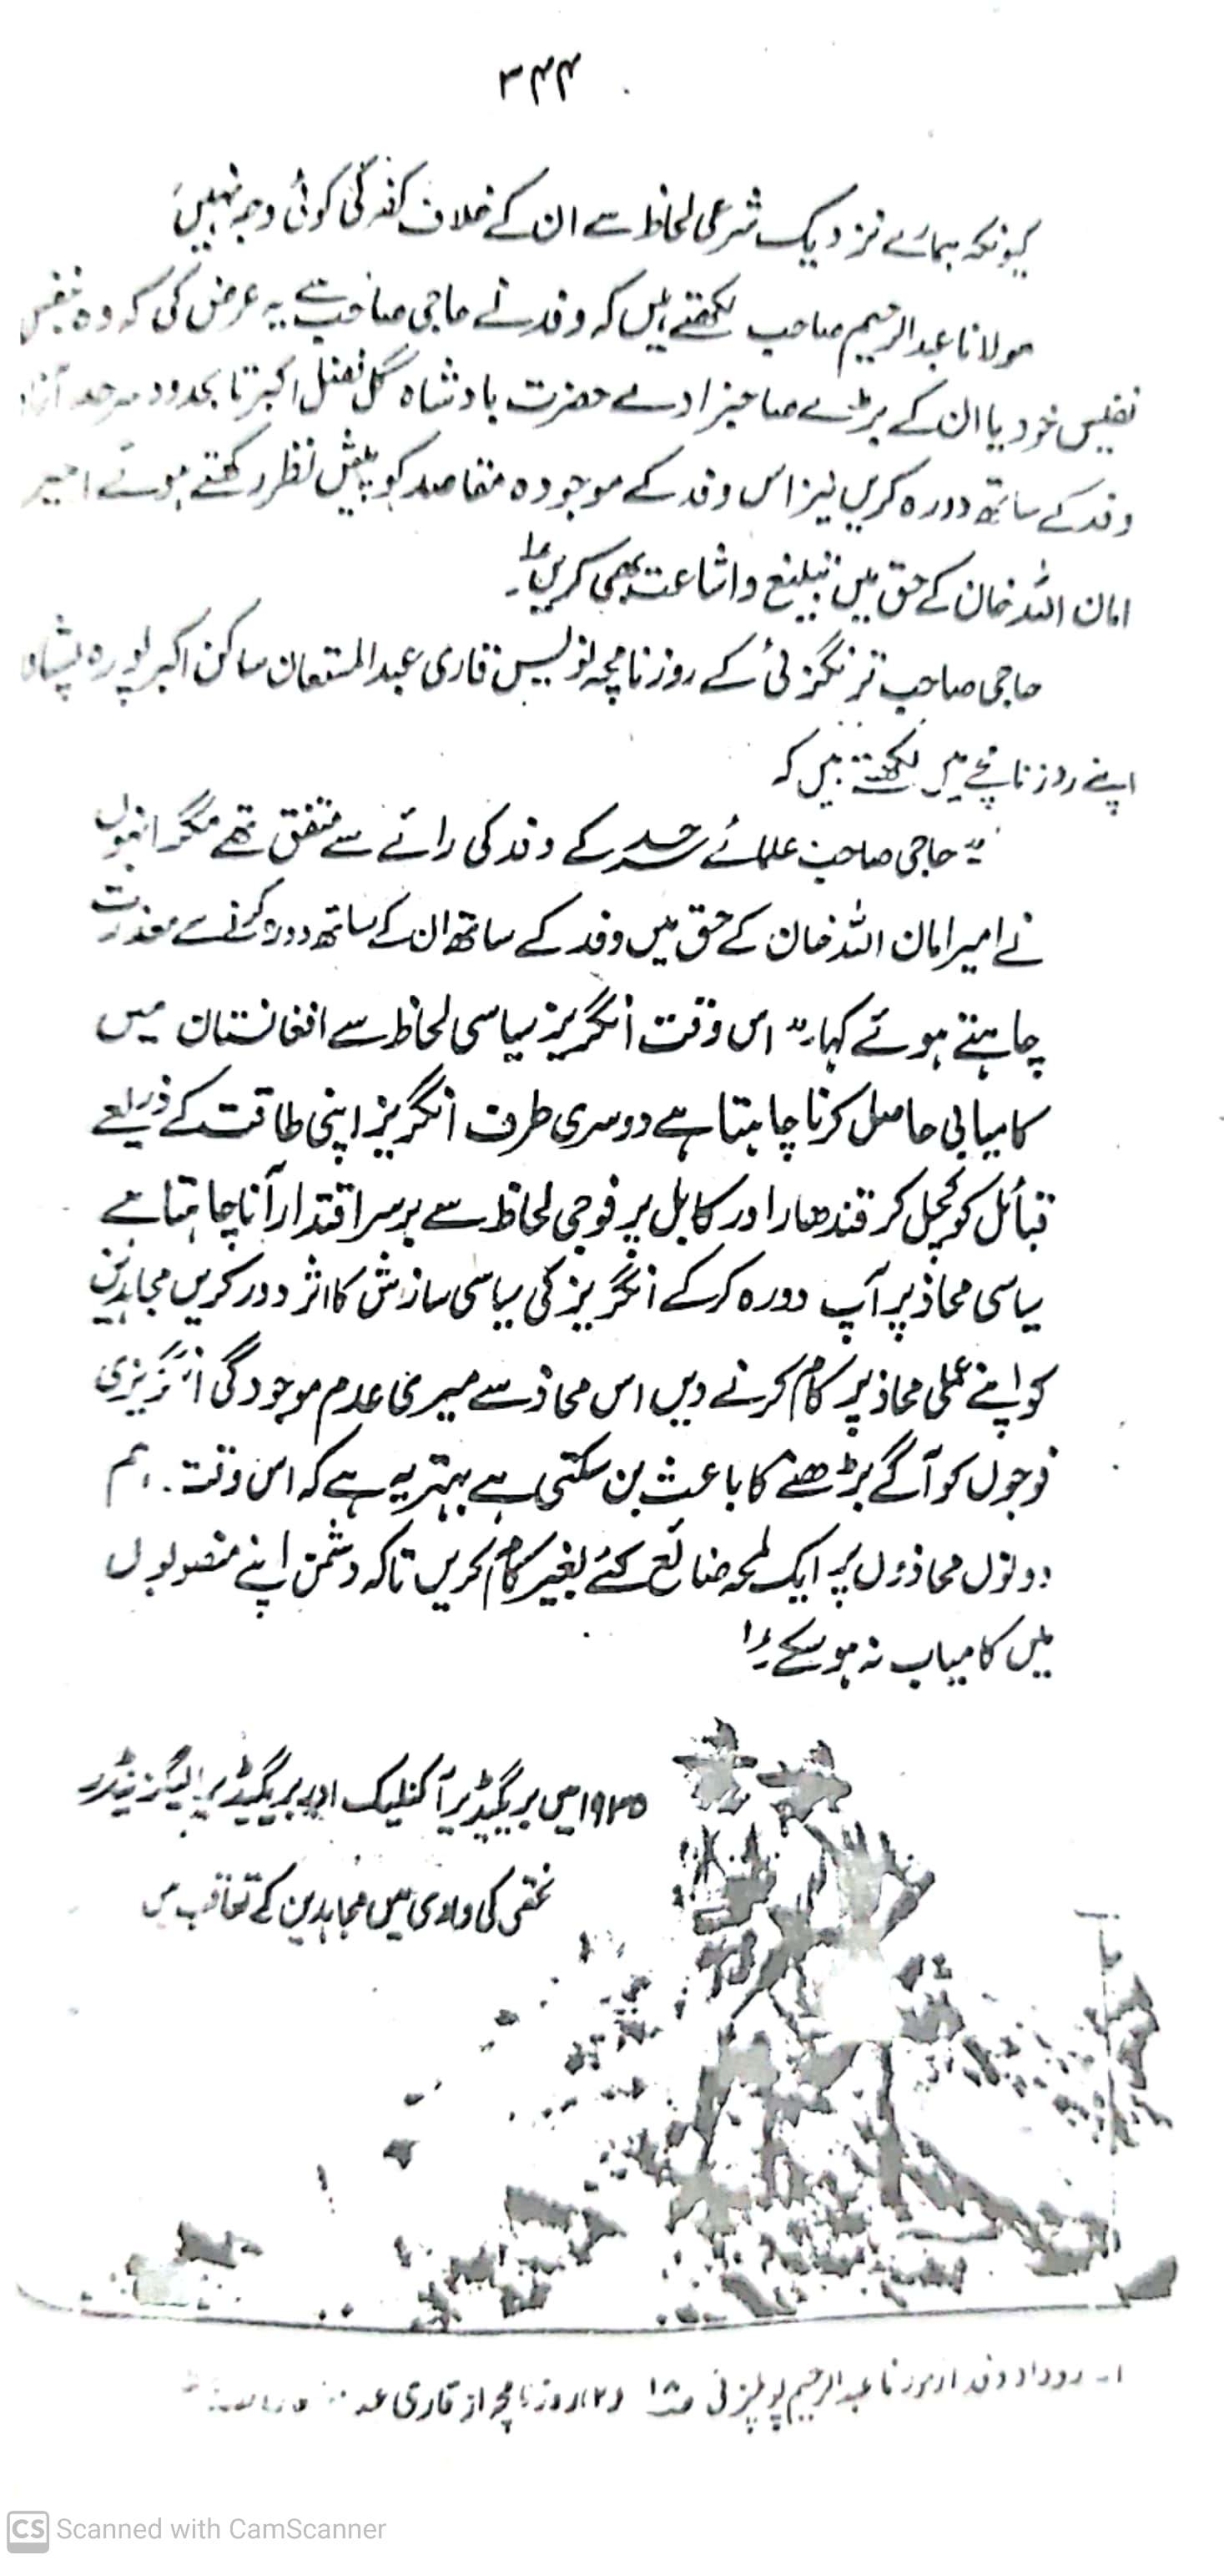 ۳۴۴
کیونکہ ہمارے نزدیک شرعی لحاظ سے ان کے خلاف کفر کی کوئی وجہ نہیں
مولانا عبدالرحیم صاحب لکھتے ہیں کہ وفد نے حاجی صاحب سے یہ عرض کی کہ وہ بنفس
نفیس خود یا ان کے بڑے صاحبزادے حضرت بادشاہ گل فضل اکبر تا بحدود سرحد آزاد
وفد کے ساتھ دورہ کریں نیز اس وفد کے موجودہ مقاصد کو پیش نظر رکھتے ہوئے امیر
امان اللہ خان کے حق میں تبلیغ و اشاعت بھی کریں ؎۱
حاجی صاحب ترنگزئی کے روزنامچہ نویس قاری عبدالمستعان ساکن اکبر پورہ پشاو
اپنے روزنامچے میں لکھتے ہیں کہ
" حاجی صاحب علمائے سرحد کے وفد کی رائے سے متفق تھے مگر انہوں
نے امیر امان اللہ خان کے حق میں وفد کے ساتھ ان کے ساتھ دورہ کرنے سے معذرت
چاہتے ہوئے کہا۔" اس وقت انگریز سیاسی لحاظ سے افغانستان میں
کامیابی حاصل کرنا چاہتا ہے دوسری طرف انگریز اپنی طاقت کے ذریعے
قبائل کو کچل کر قندھار اور کابل پر فوجی لحاظ سے برسراقتدار آنا چاہتا ہے
سیاسی محاذ پر آپ دورہ کرکے انگریز کی سیاسی سازش کا اثر دور کریں مجاہدین
کو اپنے عملی محاذ پر کام کرنے دیں اس محاذ سے میری عدم موجودگی انگریزی
فوجوں کو آگے بڑھنے کا باعث بن سکتی ہے بہتر یہ ہے کہ اس وقت ہم
دونوں محاذوں پر ایک لمحہ ضائع کئے بغیر کام کریں تاکہ دشمن اپنے منصوبوں
میں کامیاب نہ ہو سکے
۱۹۳۵ میں بریگیڈیر آکنلیک اور بریگیڈیر الیگزینڈر
نحقی کی وادی میں مجاہدین کے تعاقب میں
۱۔ روداد وفد از مولانا عبدالرحیم پوپلزئی (۲) روزنامچہ از قاری
CS Scanned with CamScanner